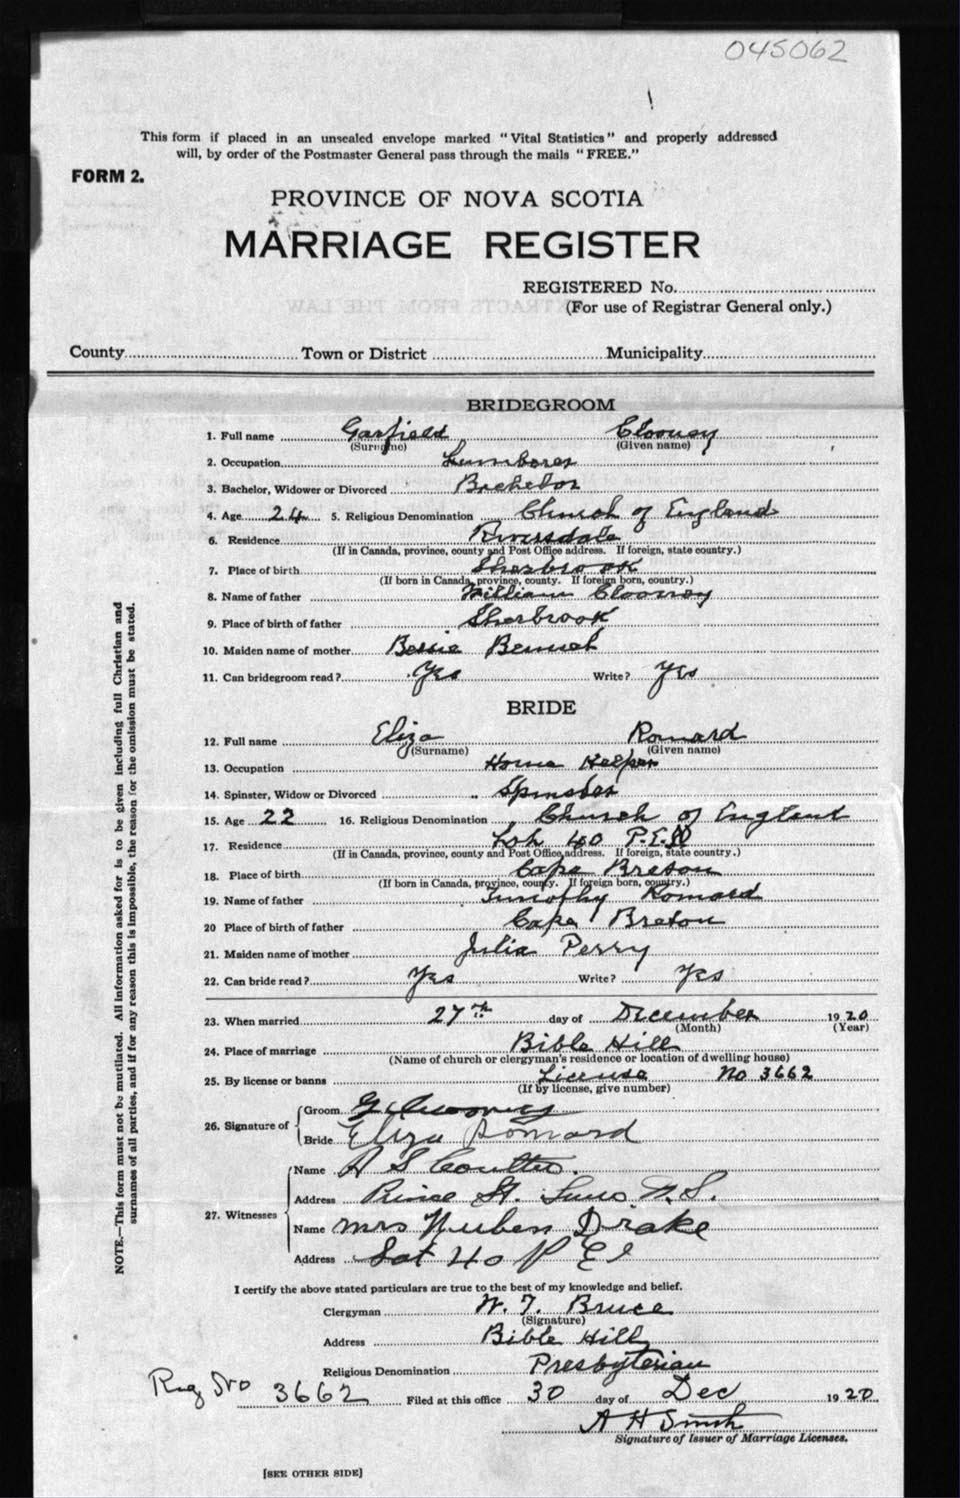 045062
This form if placed in an unsealed envelope marked "Vital Statistics" and properly addressed
will, by order of the Postmaster General pass through the mails "FREE."
FORM 2.
PROVINCE OF NOVA SCOTIA
MARRIAGE REGISTER
REGISTERED No.
(For use of Registrar General only.)
County Town or District Municipality
BRIDEGROOM
1. Full name Garfield Clooney
(Surname) (Given name)
2. Occupation Lumberer
3. Bachelor, Widower or Divorced Bachelor
4. Age 24 5. Religious Denomination Church of England
6. Residence Riversdale
(If in Canada, province, county and Post Office address. If foreign, state country.)
7. Place of birth Sherbrook
(If born in Canada, province, county. If foreign born, country.)
8. Name of father William Clooney
9. Place of birth of father Sherbrook
10. Maiden name of mother Bessie
11. Can bridegroom read? Yes Write? Yes
BRIDE
12. Full name Eliza Romard
(Surname) (Given name)
13. Occupation Home Helper
14. Spinster, Widow or Divorced Spinster
15. Age 22 16. Religious Denomination Church of England
17. Residence Lot 40 P.E.I
(If in Canada, province, county and Post Office address. If foreign, state country.)
18. Place of birth Cape Breton
(If born in Canada, province, county. If foreign born, country.)
19. Name of father Timothy Romard
20 Place of birth of father Cape Breton
21. Maiden name of mother Julia Perry
22. Can bride read? Yes Write? Yes
23. When married 27th day of December 1920
(Month) (Year)
24. Place of marriage Bible Hill
(Name of church or clergyman's residence or location of dwelling house)
25. By license or banns License No 3662
(If by license, give number)
26. Signature of Groom G Clooney
Bride Eliza Romard
27. Witnesses Name A S Coulter
Address St. N.S.
Name Mrs Drake
Address Lot 40 P E I
I certify the above stated particulars are true to the best of my knowledge and belief.
Clergyman W. T. Bruce
(Signature)
Address Bible Hill
Religious Denomination Presbyterian
Reg No 3662 Filed at this office 30 day of Dec 1920
A H Smith
Signature of Issuer of Marriage Licenses.
[SEE OTHER SIDE]
NOTE.—This form must not be mutilated. All information asked for is to be given including full Christian and
surnames of all parties, and if for any reason this is impossible, the reason for the omission must be stated.